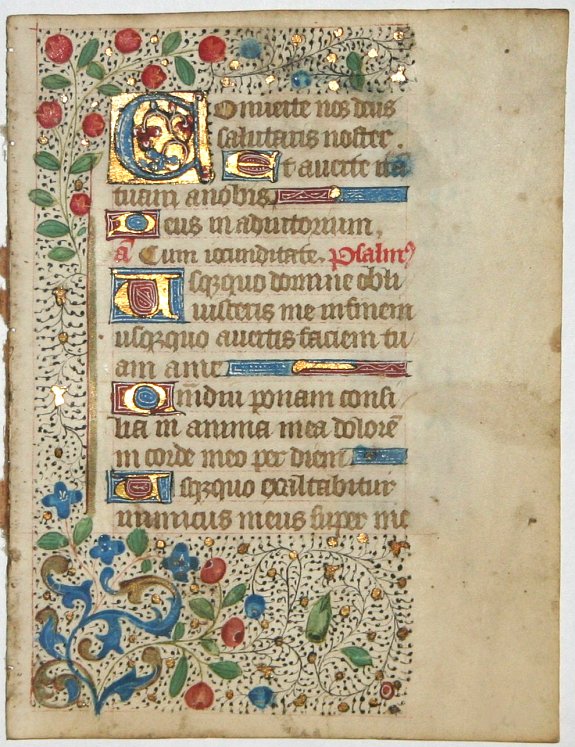 Conuerte nos deus
salutaris noster.
Et auerte ira
tuam a nobis
Deus in adiutorium.
a Cum iocunditate. Psalmꝰ
Usqꝫquo domine obli
uisceris me in finem
usqꝫquo auertis faciem tu
am a me
Quādiu ponam consi
lia in anima mea dolorē
in corde meo per diem
Usqꝫquo exaltabitur
inimicus meus super me